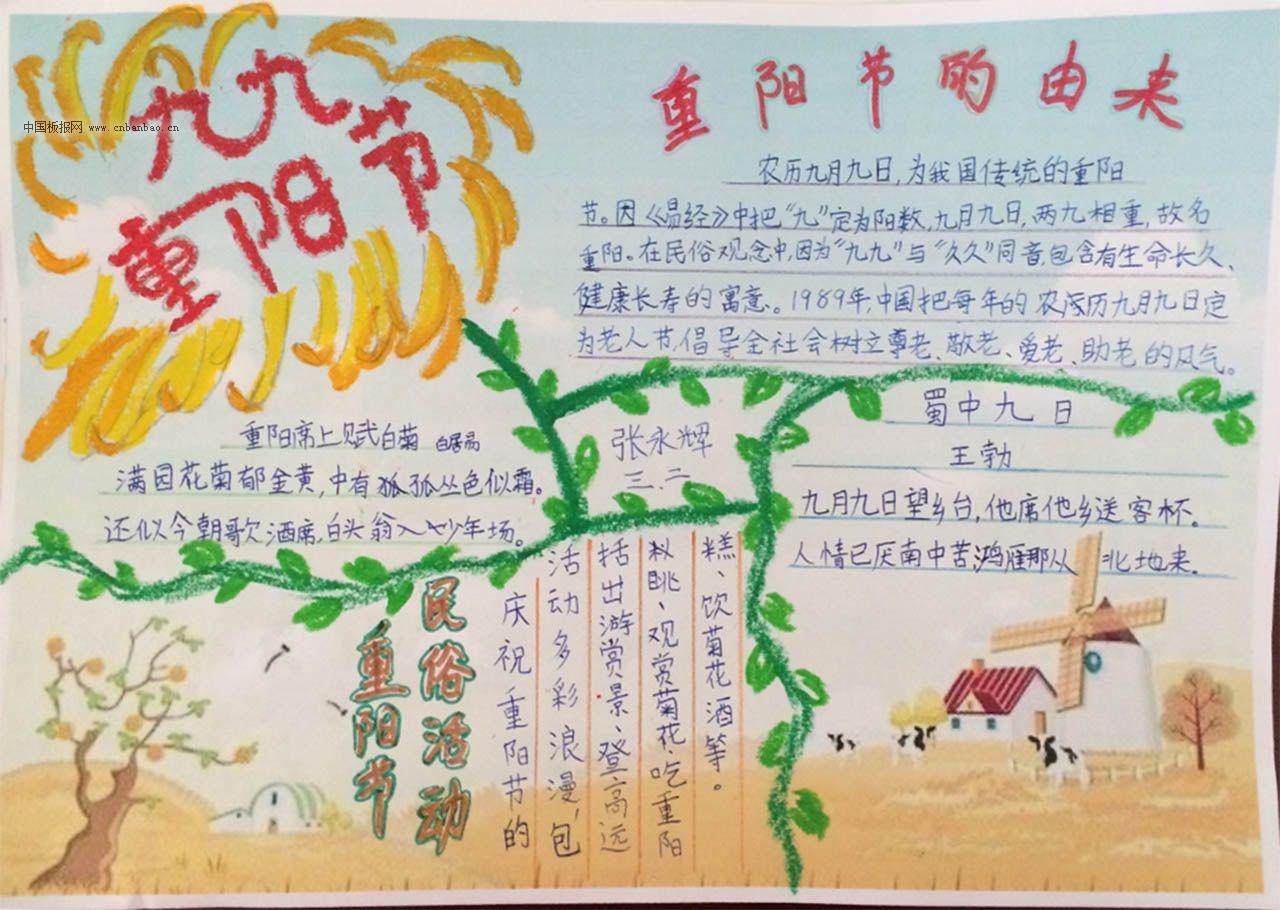 九九
重阳节
中国板报网 www.cnbanbao.cn
重阳节的由来
农历九月九日,为我国传统的重阳
节。因《易经》中把“九”定为阳数,九月九日,两九相重,故名
重阳。在民俗观念中,因为“九九”与“久久”同音,包含有生命长久、
健康长寿的寓意。1989年,中国把每年的农历九月九日定
为老人节,倡导全社会树立尊老、敬老、爱老、助老的风气。
重阳席上赋白菊 白居易
满园花菊郁金黄,中有孤孤丛色似霜。
还似今朝歌酒席,白头翁入少年场。
张永辉
三.二
蜀中九日
王勃
九月九日望乡台,他席他乡送客杯。
人情已厌南中苦,鸿雁那从北地来.
重阳节
民俗活动
庆祝重阳节的
活动多彩浪漫,包
括出游赏景、登高远
眺、观赏菊花、吃重阳
糕、饮菊花酒等。